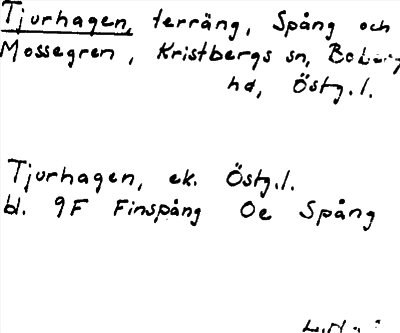 Tjurhagen, terräng, Spång och
Mossegren, Kristbergs sn, Boberg
hd, Östg.l.
Tjurhagen, ek. Östg.l.
bl. 9F Finspång Oe Spång